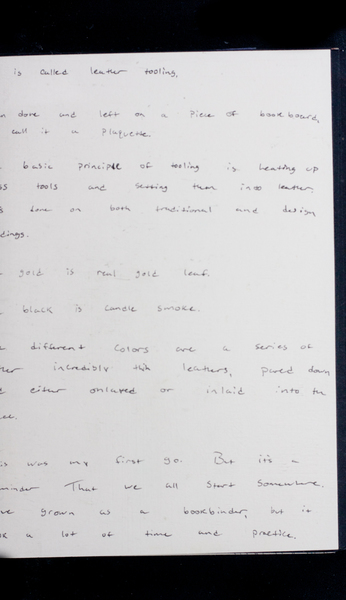 is called leather tooling.
done and left on a piece of bookboard,
call it a Plaquette.
basic principle of tooling is heating up
tools and setting them into leather,
done on both traditional and design
gold is real gold leaf.
black is candle smoke.
different colors are a series of
incredibly thin leathers, pared down
either onlayed or inlaid into the
was my first go. But it's a
That we all start somewhere.
grown as a bookbinder, but it
a lot of time and practice.